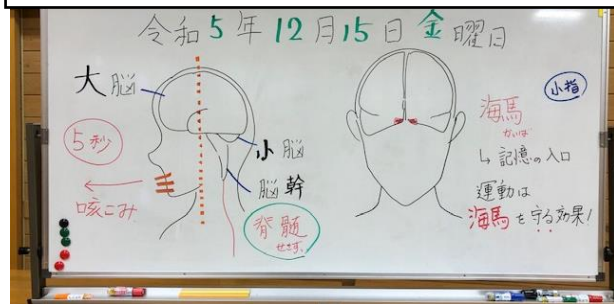 令和5年12月15日 金曜日
大脳
5秒
咳こみ
小脳
脳幹
脊髄
せきずい
小指
海馬
かいば
↳ 記憶の入口
運動は
海馬を守る効果!